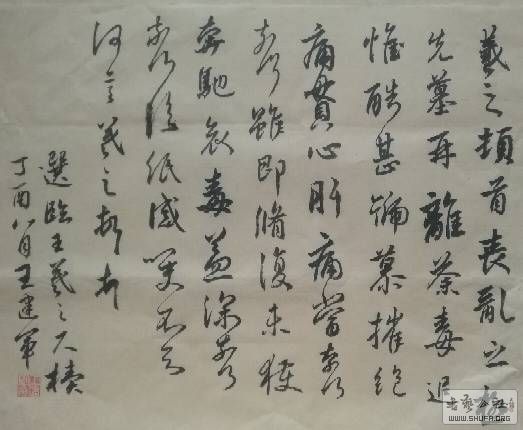 羲之頓首喪亂之極
先墓再離荼毒追
惟酷甚號慕摧絕
痛貫心肝痛當奈何
奈何雖即脩復未獲
奔馳哀毒益深奈何
奈何臨紙感哽不知
何言羲之頓首頓首
選臨王羲之尺牘
丁酉八月王建軍
书艺公社
WWW.SHUFA.ORG